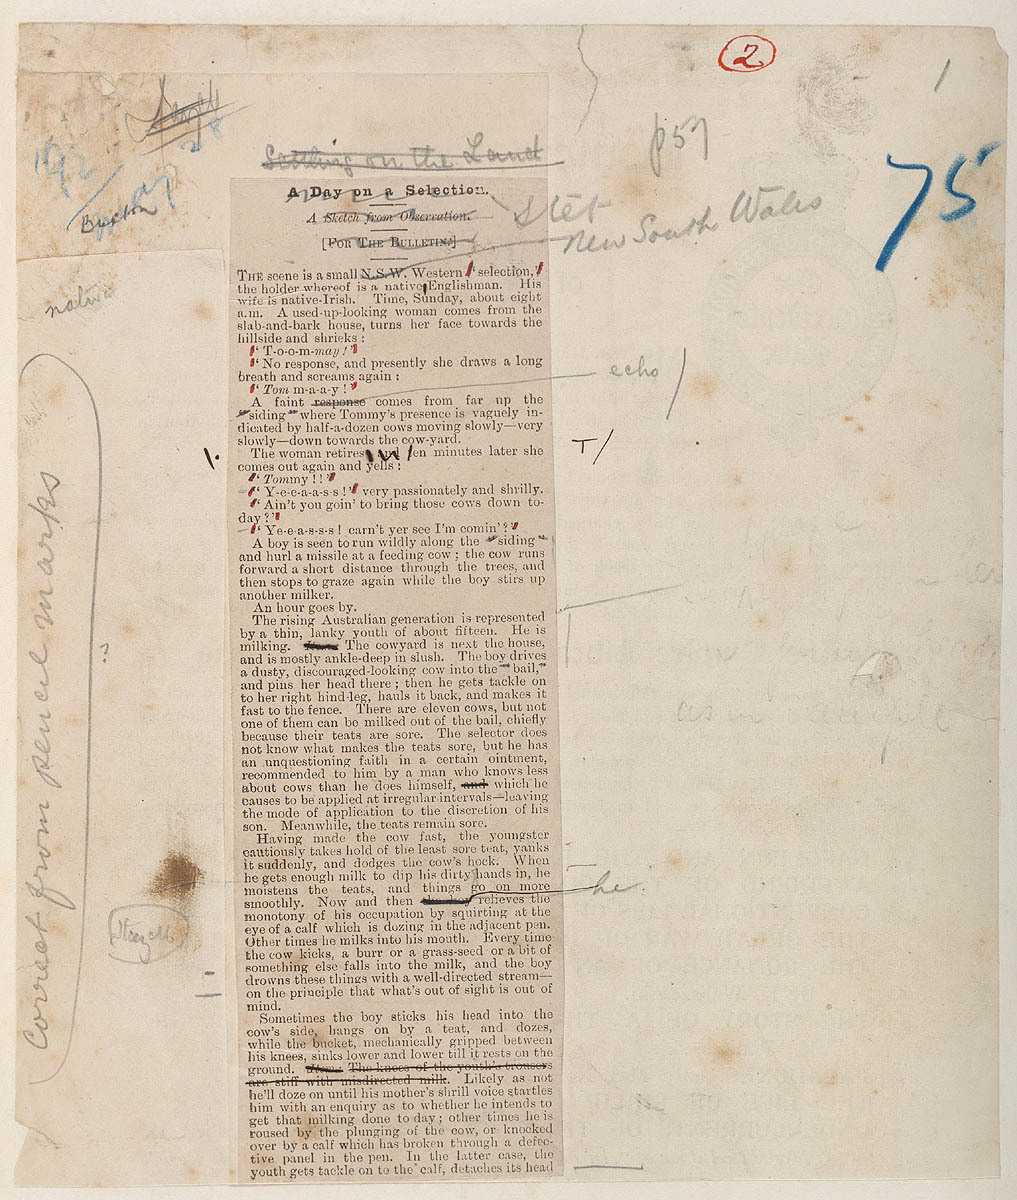 2
1
p57
75
192
Buxton
Settling on the Land
A Day on a Selection.
Stet
A Sketch from Observation.
New South Wales
[FOR THE BULLETIN.]
THE scene is a small N.S.W. Western "selection,"
the holder whereof is a native Englishman. His
wife is native-Irish. Time, Sunday, about eight
a.m. A used-up-looking woman comes from the
slab-and-bark house, turns her face towards the
hillside and shrieks:
"T-o-o-m-may!"
No response, and presently she draws a long
breath and screams again:
"Tom m-a-a-y!"
echo/
A faint response comes from far up the
"siding" where Tommy's presence is vaguely in-
dicated by half-a-dozen cows moving slowly—very
slowly—down towards the cow-yard.
The woman retires and ten minutes later she
T/
comes out again and yells:
"Tommy!!"
"Y-e-e-a-a-s-s!" very passionately and shrilly.
"Ain't you goin' to bring those cows down to-
day?"
"Ye-e-a-s-s-s! carn't yer see I'm comin'?"
A boy is seen to run wildly along the "siding"
and hurl a missile at a feeding cow; the cow runs
forward a short distance through the trees, and
then stops to graze again while the boy stirs up
another milker.
An hour goes by.
The rising Australian generation is represented
by a thin, lanky youth of about fifteen. He is
milking. The cowyard is next the house,
and is mostly ankle-deep in slush. The boy drives
a dusty, discouraged-looking cow into the "bail,"
and pins her head there; then he gets tackle on
to her right hind-leg, hauls it back, and makes it
fast to the fence. There are eleven cows, but not
one of them can be milked out of the bail, chiefly
because their teats are sore. The selector does
not know what makes the teats sore, but he has
an unquestioning faith in a certain ointment,
recommended to him by a man who knows less
about cows than he does himself, and which he
causes to be applied at irregular intervals—leaving
the mode of application to the discretion of his
son. Meanwhile, the teats remain sore.
Having made the cow fast, the youngster
cautiously takes hold of the least sore teat, yanks
it suddenly, and dodges the cow's hock. When
he gets enough milk to dip his dirty hands in, he
moistens the teats, and things go on more
he
smoothly. Now and then the boy relieves the
monotony of his occupation by squirting at the
eye of a calf which is dozing in the adjacent pen.
Other times he milks into his mouth. Every time
the cow kicks, a burr or a grass-seed or a bit of
something else falls into the milk, and the boy
drowns these things with a well-directed stream—
on the principle that what's out of sight is out of
mind.
Sometimes the boy sticks his head into the
cow's side, hangs on by a teat, and dozes,
while the bucket, mechanically gripped between
his knees, sinks lower and lower till it rests on the
ground. Item: The knees of the youth's trousers
are stiff with misdirected milk. Likely as not
he'll doze on until his mother's shrill voice startles
him with an enquiry as to whether he intends to
get that milking done to day; other times he is
roused by the plunging of the cow, or knocked
over by a calf which has broken through a defec-
tive panel in the pen. In the latter case, the
youth gets tackle on to the calf, detaches its head
native
Correct from pencil marks